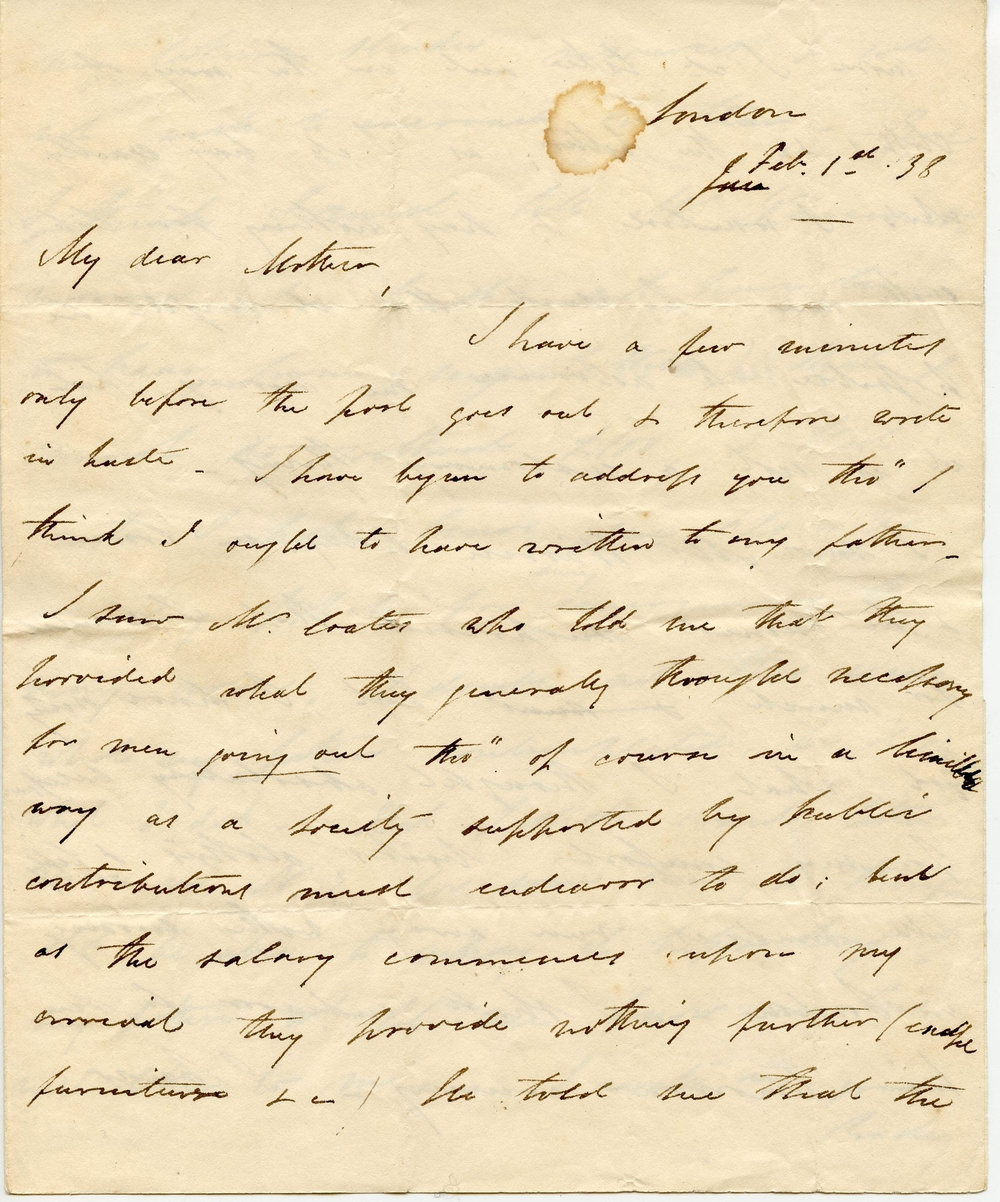 London
Jan Feb. 1st. 38
My dear Mother,
I have a few minutes
only before the post goes out, & therefore write
in haste - I have begun to address you tho" I
think I ought to have written to my father -
I saw Mr. Coates who told me that they
provided what they generally thought necessary
for men going out tho" of course in a limited
way as a society supported by public
contributions must endeavor to do; but
as the salary commences upon my
arrival they provide nothing further (
furniture &c) He told me that the